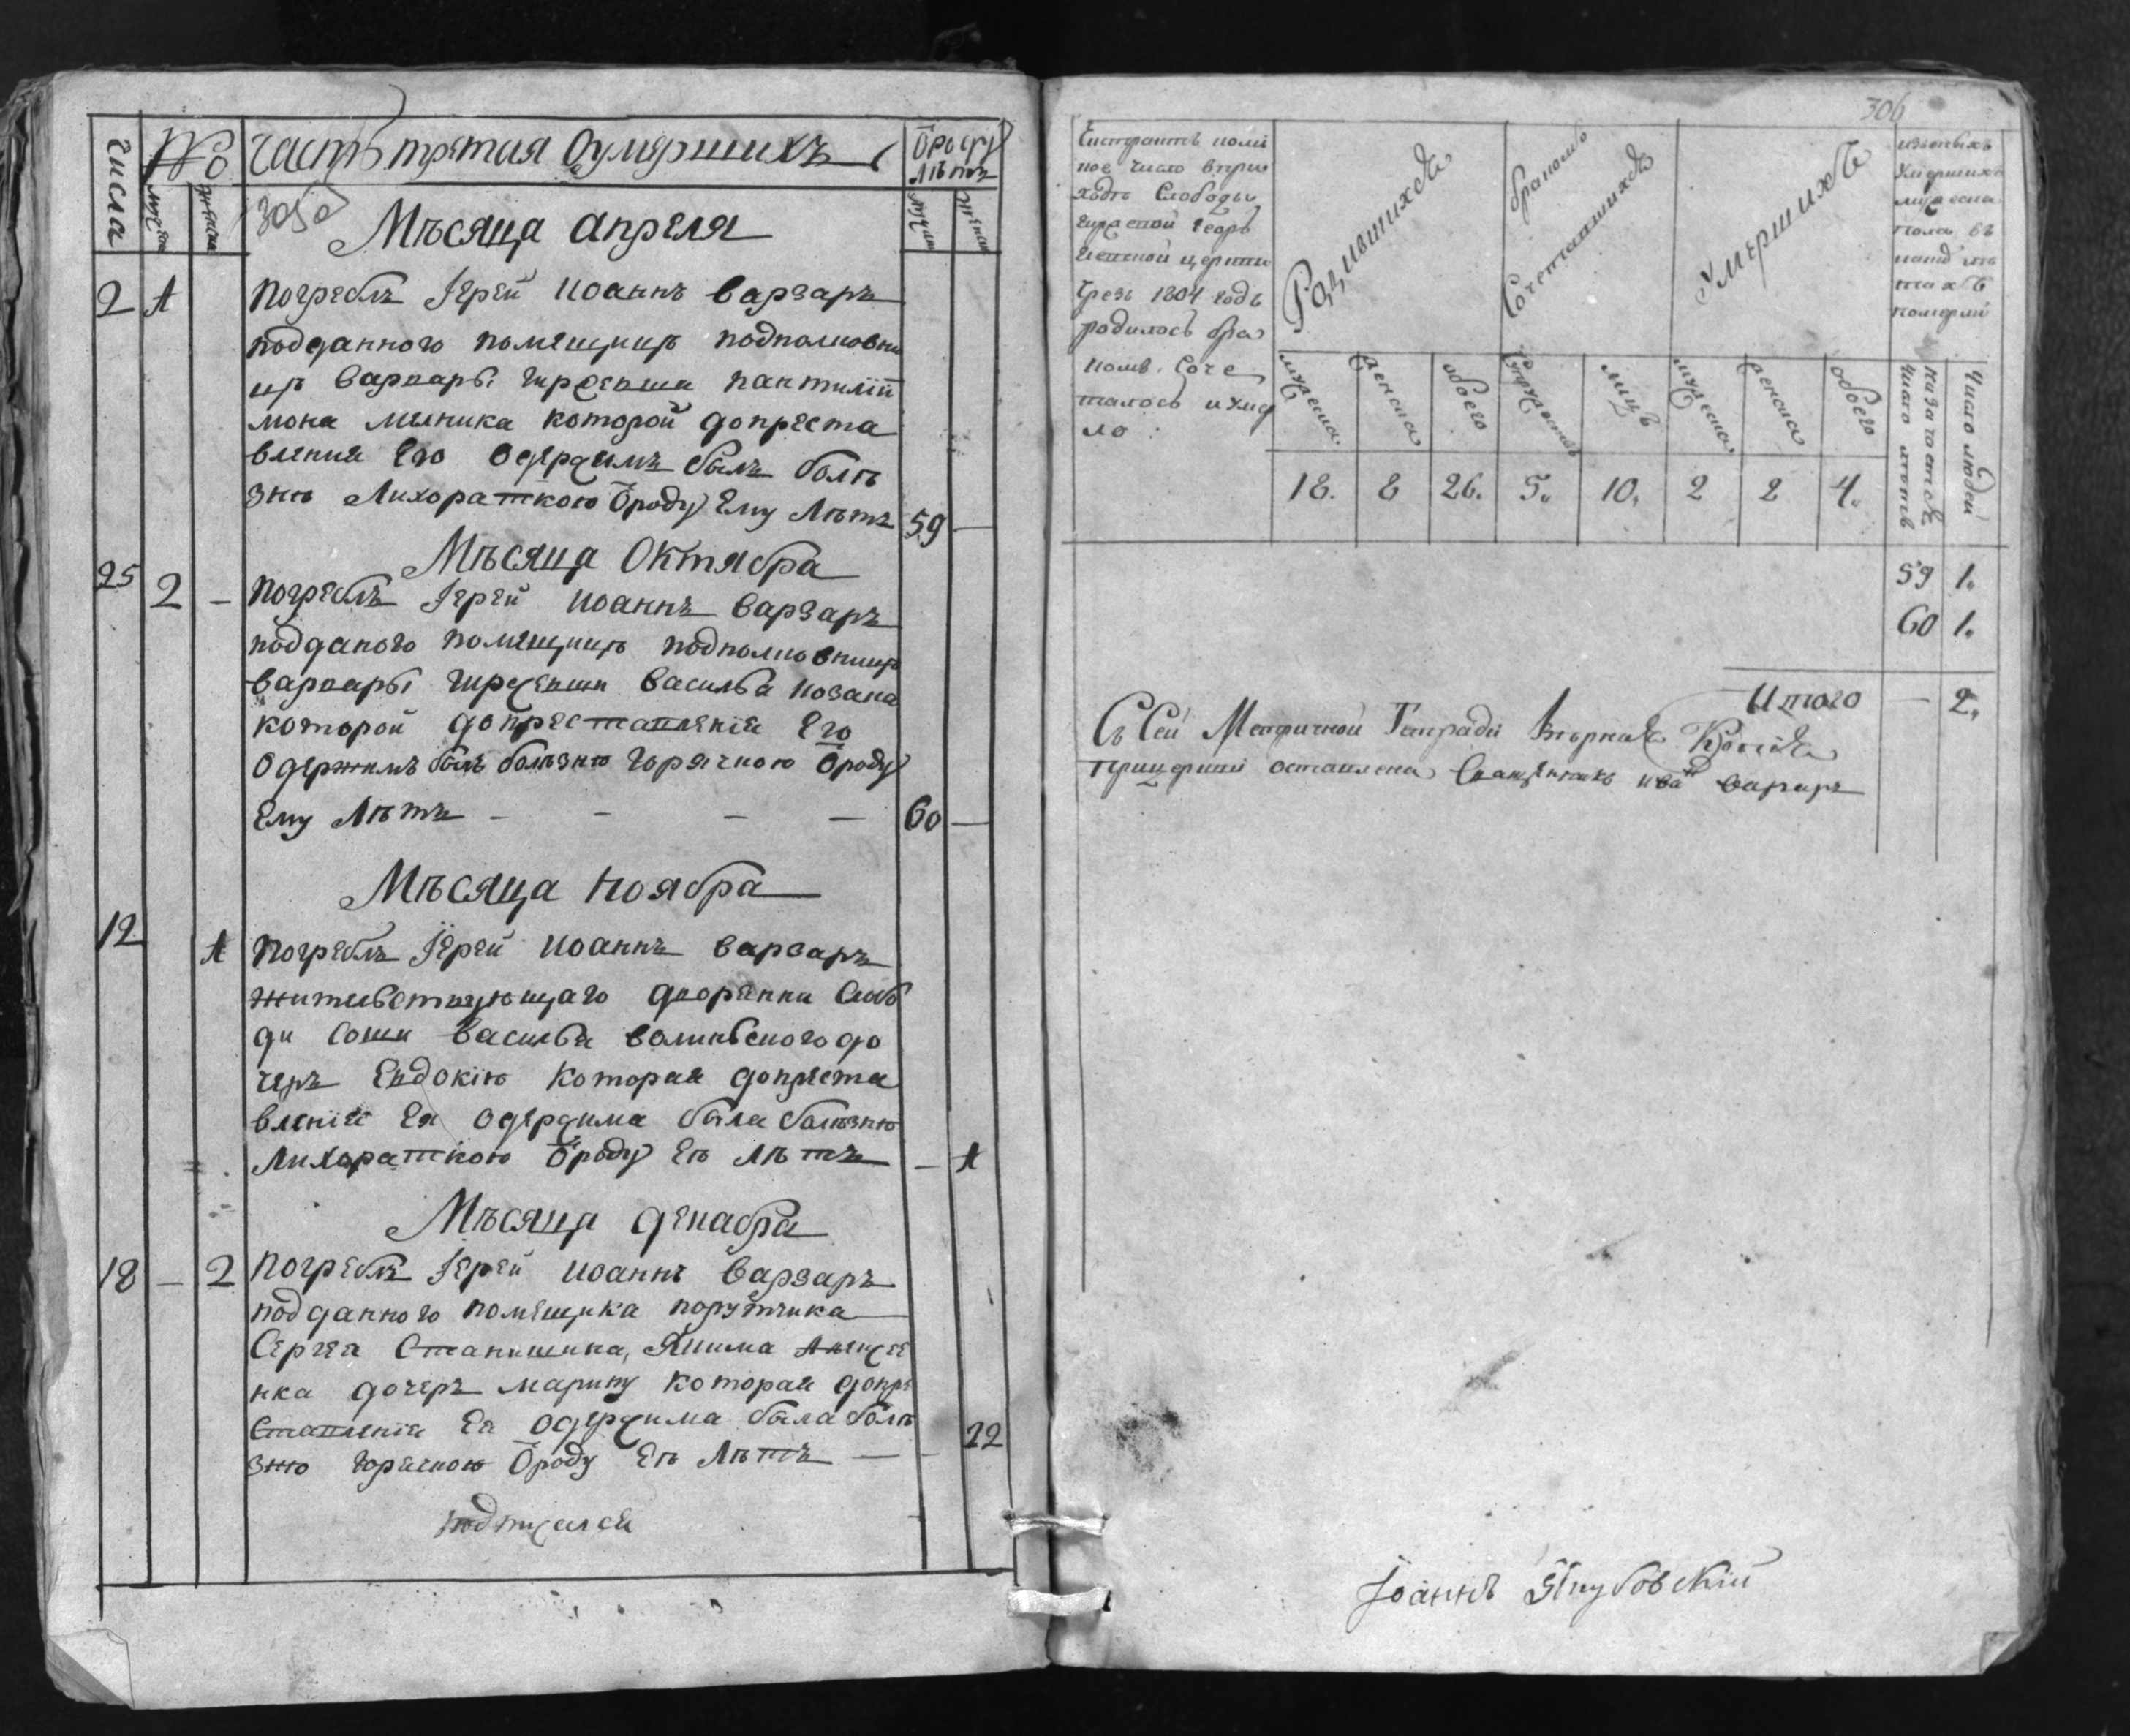 числа
№
часть третая Оумершихъ
Ѿроду
лѣтъ
мужеска
женска
мужеска
женска
305
Мѣсяца апреля
2
1
погреблъ Іерей иоаннъ варзаръ
подданного помещицѣ подполковни
цѣ варвары гиржевши пантилій
мона мыника которой допреста
вления Его Одержимъ былъ болѣ
знѣ Лихораткою Ѿроду Ему Лѣтъ
59
—
Мѣсяца Октября
25
2
—
погреблъ Іерей иоаннъ варзаръ
подданого помещицѣ подполковницѣ
варвары гиржевши василья козака
которой допреставлениїя Его
Одержимъ былъ болѣзню горячкою Ѿроду
Ему Лѣтъ — — — —
60
—
Мѣсяца ноября
12
1
погреблъ Іерей иоаннъ варзаръ
жителвствующаго дворянки Слоб
ди василья волинского до
черъ Евдокію которая допреста
вленїе Ея Одержима была болѣзню
Лихораткою Ѿроду Еѣ Лѣтъ
—
1
Мѣсяца декабря
18
—
2
погреблъ Іерей иоаннъ варзаръ
подданного помещика порутчика
Сергея Станишика, Якима Алексее
нка дочеръ марину которая допре
ставленїя Ея Одержима была болѣ
зню горячкою Ѿроду Еѣ Лѣтъ —
22
подписался
306
число въ при
ходѣ Слободы
Георъ
гиевской церкви
Чрезъ 1804 годъ
родилось бра
комъ Соче
талось и умер
ло:
Родившихся
бракомъ
Сочетавшихся
Умершихъ
изонихъ
умершихъ
мужеска
пола въ
лѣ
тахъ
померли
мужеска
женска
обоего
Супружествъ
лицъ
мужеска
женска
обоего
Число лѣтъ
Число людей
18.
8
26.
5.
10.
2
2
4.
59
1.
60
1.
Итого
—
2.
Съ Сей Метричной Тетради вѣрная Копія
прицеркви оставлена Священникъ иванъ варзаръ
Іоаннъ Якубовскій